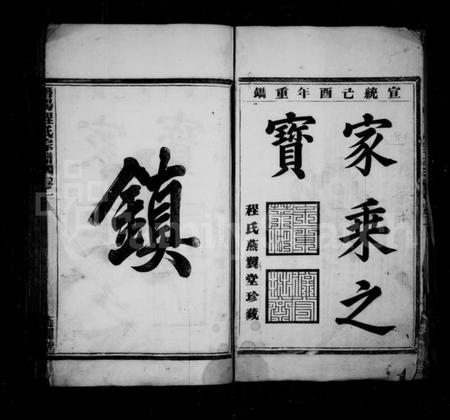 宣統己酉年重鐫
家乘之
寶
程氏燕翼堂珍藏
鎮
程氏宗譜